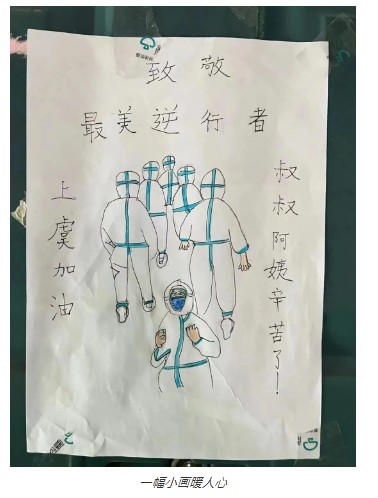 致敬
最美逆行者
上虞加油
叔叔阿姨辛苦了！
一幅小画暖人心